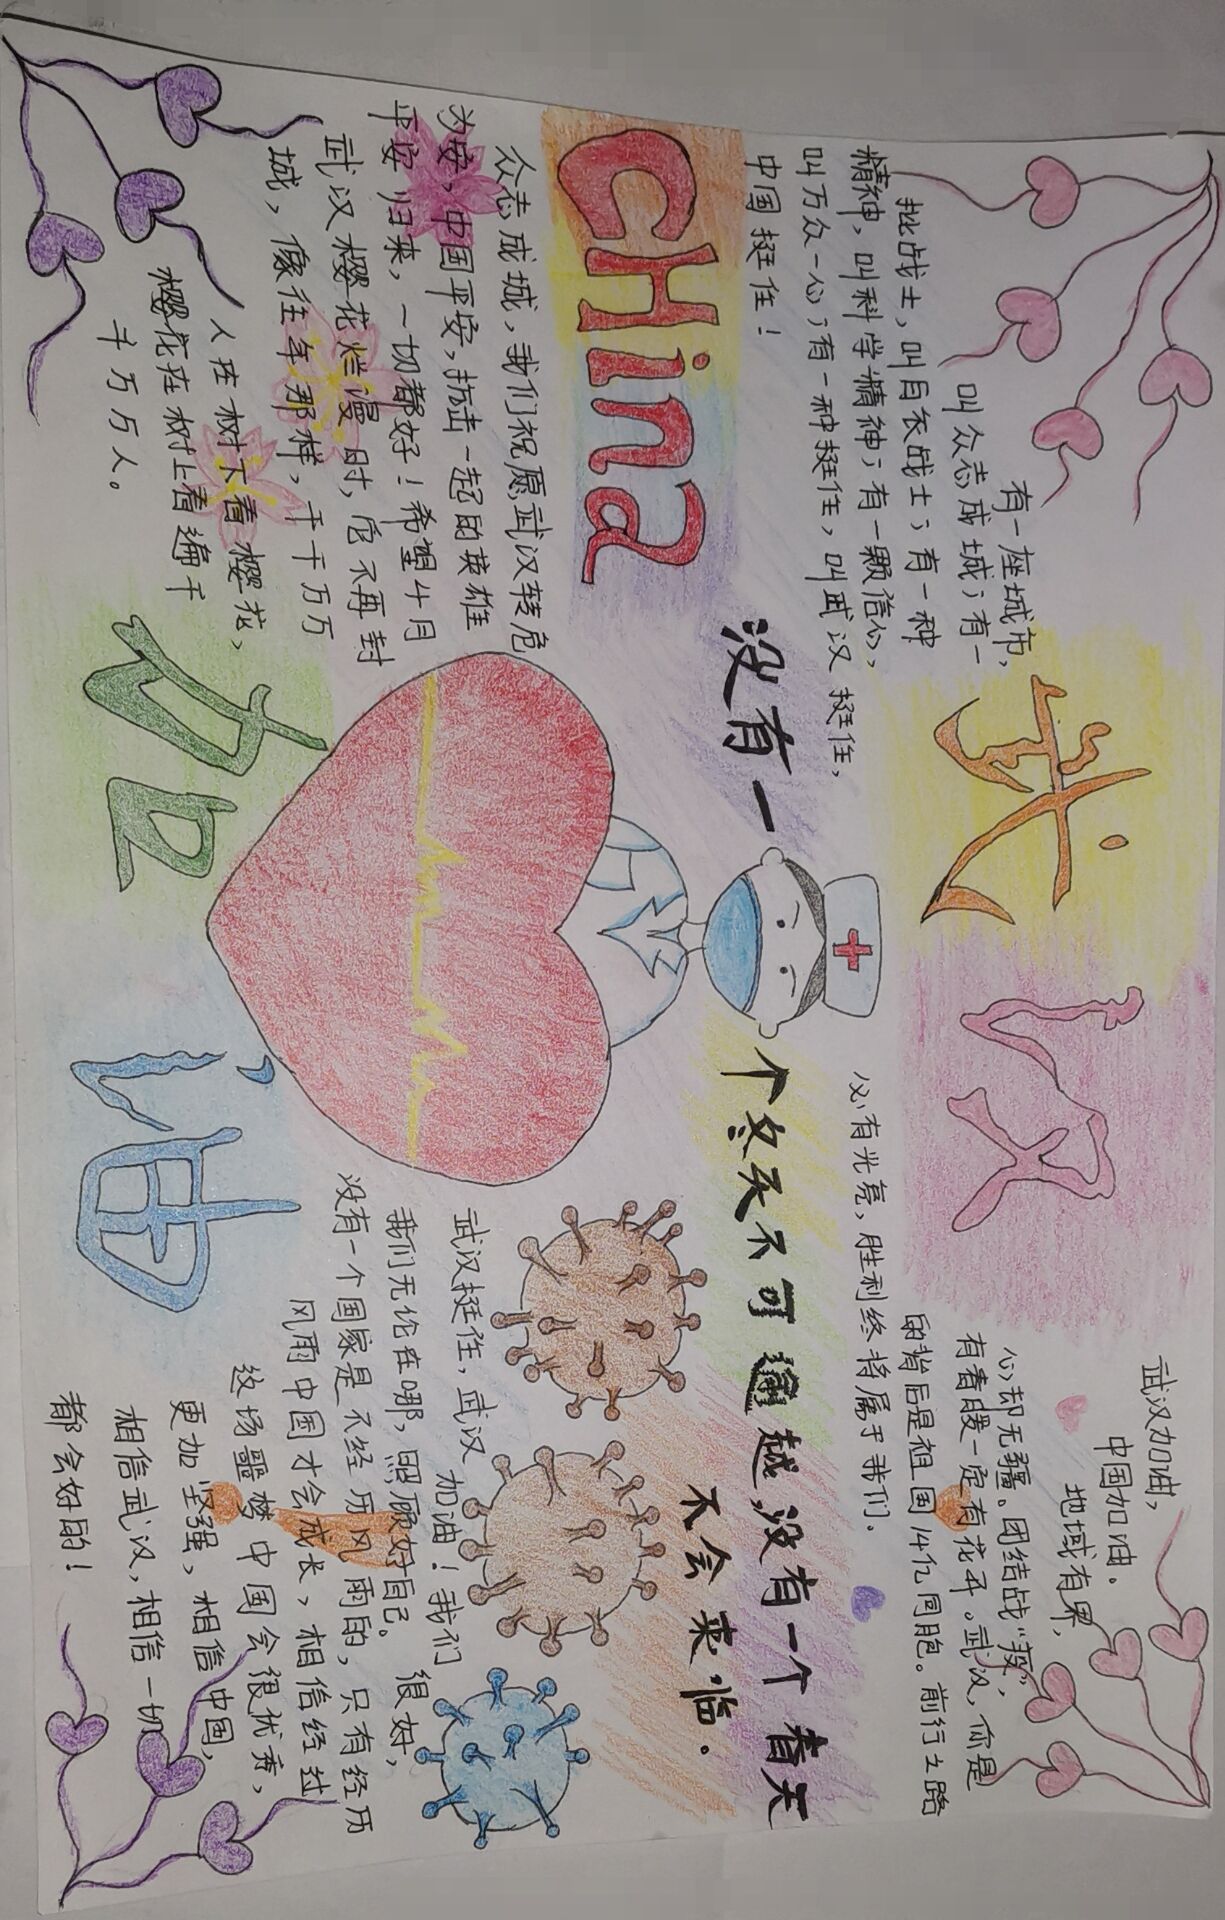 武汉
有一座城市，
叫众志成城；有一
批战士，叫白衣战士；有一种
精神，叫科学精神；有一颗信心，
叫万众一心；有一种挺住，叫武汉挺住，
中国挺住！
武汉加油，
中国加油。
地域有界，
心却无疆。团结战“疫”，
有春暖一定有花开。武汉，你是
的背后是祖国14亿同胞。前行之路
必有光亮，胜利终将属于我们.
没有一个冬天不可逾越，没有一个春天
不会来临。
CHina
众志成城，我们祝愿武汉转危
为安，中国平安，抗击一起的英雄
平安归来，一切都好！希望4月
武汉樱花烂漫时，它不再封
城，像往年那样，千千万万
人在树下看樱花，
樱花在树上看遍千
千万万人。
加油
武汉挺住，武汉加油！我们
我们无论在哪，照顾好自己。很好，
没有一个国家是不经历风雨的，只有经历
风雨中国才会成长，相信经过
这场噩梦中国会很优秀，
更加坚强，相信中国，
相信武汉，相信一切
都会好的！